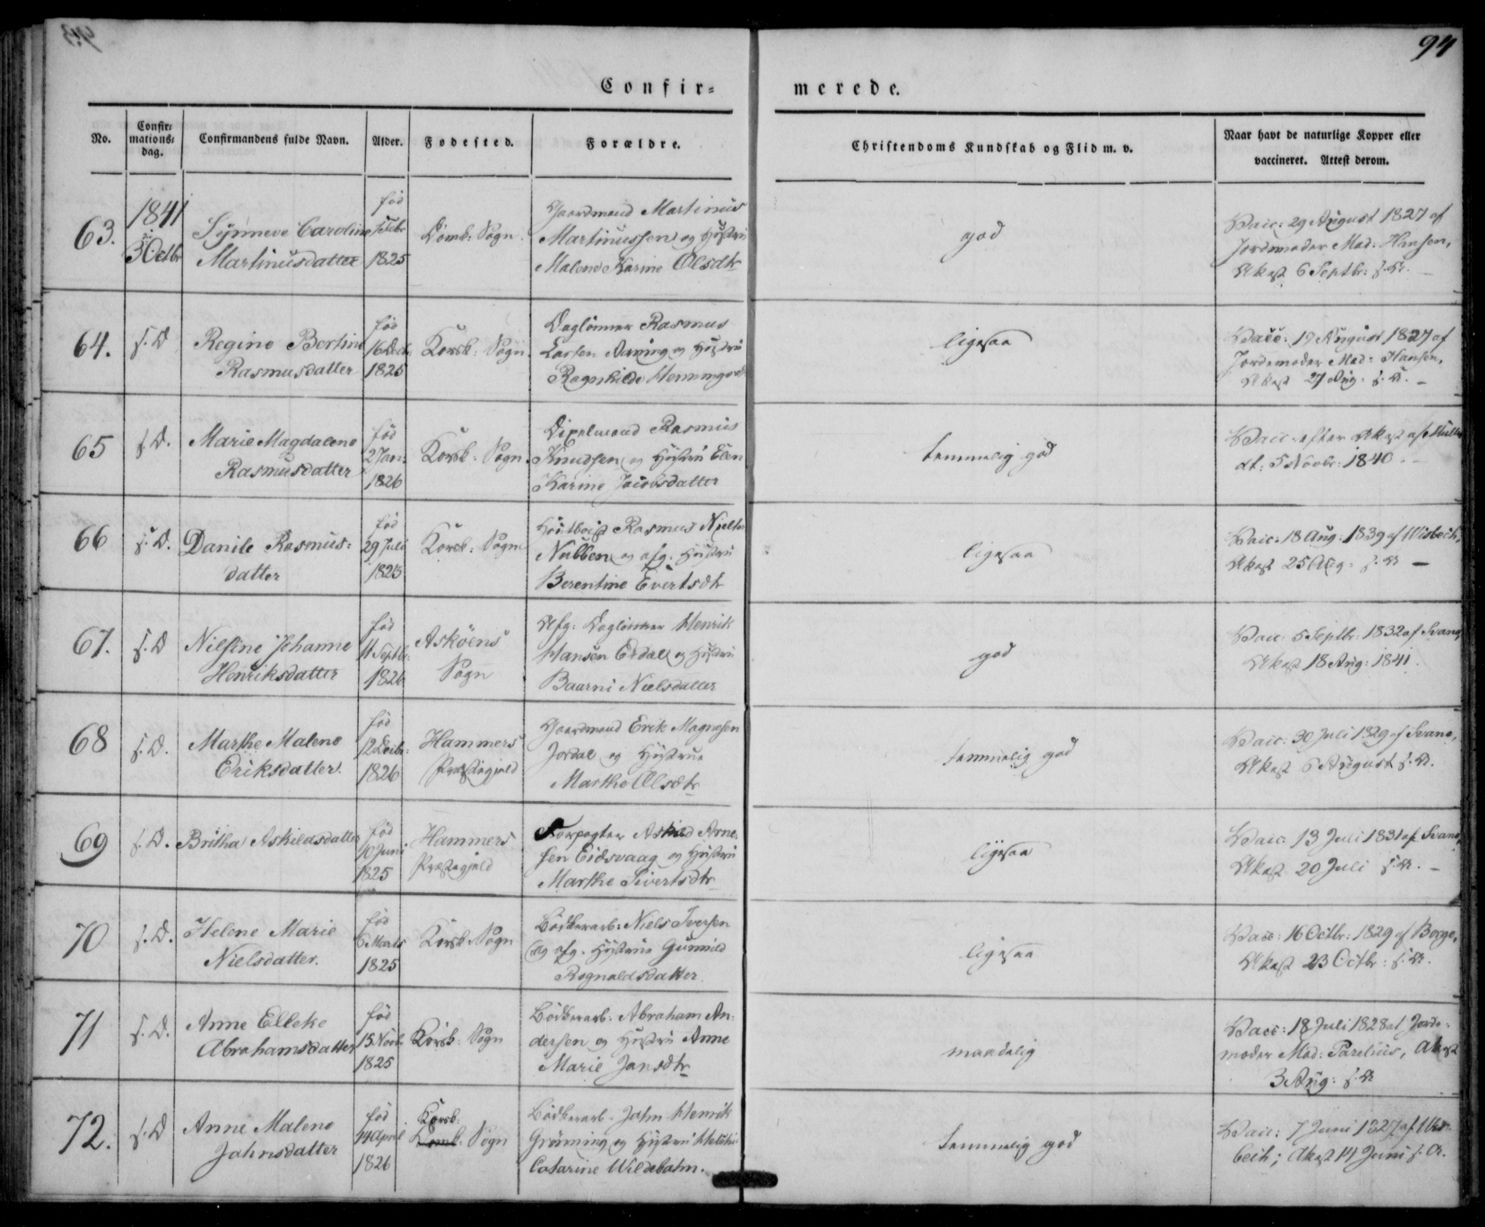 94
Confir= merede.
No. Confir=mations=dag. Confirmandens fulde Navn. Alder. Fødested. Forældre. Christendoms Kundskab og Flid m. v. Naar havt de naturlige Kopper eller vaccineret. Attest derom.
63. 1841 3 Octbr Synneve Caroline Martinusdatter fød Febr 1825 Domk: Sogn. Gaardmand Martinus Martinussen og Hustru Malene Karine Olsdtr god Vacc: 29 August 1827 af Jordemoder Mad: Hansen, Attest 6 Septbr: s. A. —
64. s. D Regine Bertine Rasmusdatter fød 16 Decb 1825 Korsk: Sogn Daglønner Rasmus Larsen og Hustru Ragnhilde Henningsd ligesaa Vacc: 19 August 1827 af Jordemoder Mad: Hansen, Attest 27 Aug: s. A. —
65 s. D. Marie Magdalene Rasmusdatter fød 2 Jan: 1826 Korsk: Sogn. Rasmus Knudsen og Hustru Elen Karine Jacobsdatter temmelig god Vacc: efter Attest af Müller dt: 5 Novbr: 1840. —
66 s. D. Danile Rasmus=datter fød 29 Juli 1825 Korsk: Sogn Rasmus Nielsen Nubben og afg: Hustru Berentine Evertsdtr ligesaa Vacc: 18 Aug: 1839 af Wisbech, Attest 25 Aug: s. A —
67. s. D Nilsine Johanne Henriksdatter fød 11 Septbr: 1826 Askøens Sogn Afg: Daglønner Henrik Hansen Erdal og Hustru Baarni Nielsdatter god Vacc: 5 Septbr: 1832 af Svang Attest 18 Aug: 1841.
68 s. D. Marthe Malene Eriksdatter. fød 12 Decbr: 1826 Hammers Præstegjeld Gaardmand Erik Magnesen Jordal og Hustrue Marthe Olsdtr temmelig god Vacc: 30 Juli 1829 af Svane, Attest 6 August s. A.
69 s. D. Britha Askildsdatter fød 10 Juni 1825 Hammers Præstegjeld Forpagter Askild Arne=sen Eidsvaag og Hustru Marthe Sivertsdtr ligesaa Vacc: 13 Juli 1831 af Svane, Attest 20 Juli s. A. —
70 s. D. Helene Marie Nielsdatter. fød 6 Marts 1825 Korsk: Sogn Bødkerarb: Niels Iversen og afg. Hustrue Gunnild Rognaldsdatter. ligesaa Vacc: 16 Octbr: 1829 af Borge, Attest 23 Octbr: s. A.
71 s. D. Anne Elleke Abrahamsdatter fød 15 Novb. 1825 Korsk: Sogn Bødkerarb. Abraham An=dersen og Hustru Anne Marie Jansdtr maadelig Vacc: 18 Juli 1828 af Jorde=moder Mad: Parelius, Attest 3 Aug: s. A
72. s. D Anne Malene Jahnsdatter fød 14 April 1826 Korsk: Domk: Sogn Bødkerarb. Jahn Henrik Grønning og Hustru Catarine Wildebahn. temmelig god Vacc: 7 Juni 1827 af Wis=bech; Attest 14 Juni s. A.